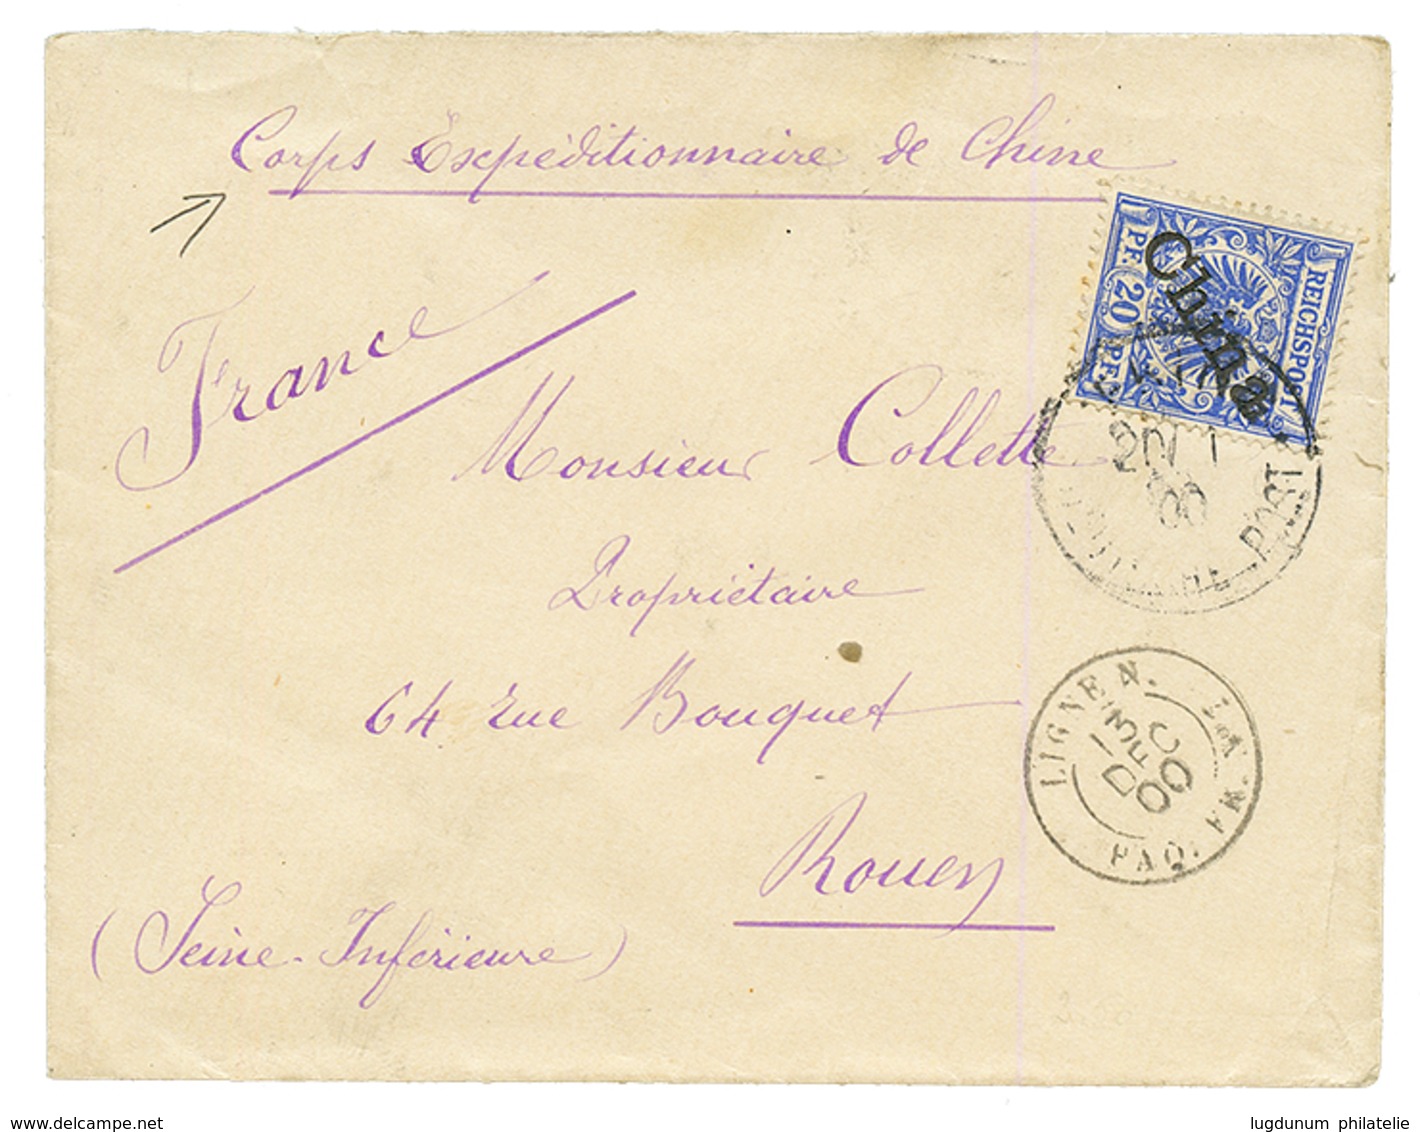 Corps Expéditionnaire de Chine
France
REICHSPOST
PF. 20 PF.
China
Monsieur Collette
20/1
00
POST
Propriétaire
64 rue Bouquet
LIGNE N.
PAQ. FR.
13
DEC
00
Rouen
(Seine-Inférieure)
www.delcampe.net
lugdunum philatelie